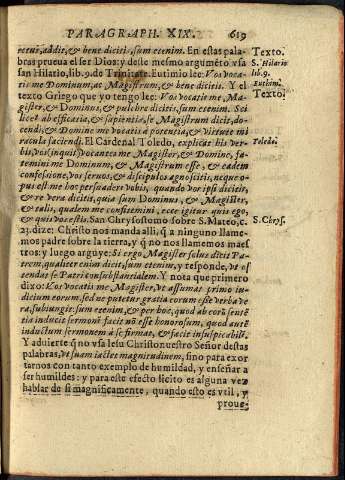 PARAGRAPH. XIX. 619
cetur, addit, & bene dicitis, sum etenim. En estas pala-
bras prueua el ser Dios: y deste mesmo argumẽto vsa
san Hilario, lib. 9. de Trinitate. Eutimio lee: Vos voca-
tis me Dominum, ac Magistrum, & bene dicitis. Y el
texto Griego que yo tengo lee: Vos vocatis me, Ma-
gister, & Dominus, & pulchre dicitis, sum etenim. Sci
licet ab efficatia, & sapientia, se Magistrum dicit, do-
cendi, & Domine me vocatis à potentia, & virtute mi
racula faciendi. El Cardenal Toledo, explicat his ver-
bis, vos inquit vocantes me Magister, & Domine, fa-
temini me Dominum, & Magistrum esse, & eadem
confesione, vos seruos, & discipulos agnoscitis, neque o-
pus est me hoc persuadere vobis, quando vos ipsi dicitis,
& re vera dicitis, quia sum Dominus, & Magister,
& talis, qualem me confitemini, ecce igitur quis ego,
& quis vos estis. San Chrysostomo sobre S. Mateo, c.
23. dize: Christo nos manda alli, q̃ a ninguno llame-
mos padre sobre la tierra, y q̃ no nos llamemos maes
tros: y luego arguye: Si ergo Magister solus dicit Pa-
trem, qualiter enim dicit, sum etenim, y responde, vt os
tendat se Patri consubstantialem. Y nota que primero
dixo: Vos vocatis me Magister, vt assumat primo iu-
dicium eorum, sed ne putetur gratia eorum esse verba ve
ra, subiungit: sum etenim, & per hoc, quod ab eorũ sentẽ
tia inducit sermonẽ facit nõ esse honorosum, quod autẽ
inductum sermonem à se firmat, & facit insuspicabilẽ.
Y aduierte q̃ no vsa Iesu Christo nuestro Señor destas
palabras, vt suam iactet magnitudinem, sino para exor
tarnos con tanto exemplo de humildad, y enseñar a
ser humildes: y para este efecto licito es alguna vez
hablar de si magnificamente, quando esto es vtil, y
proue-
Texto.
S. Hilario
lib. 9.
Euthim.
Texto.
Toledo.
S. Chrys.